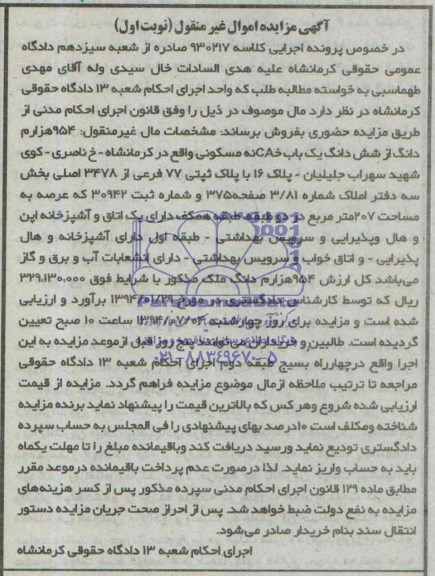 آگهی مزایده اموال غیر منقول (نوبت اول)
در خصوص پرونده اجرایی کلاسه ۹۳۰۲۱۷ صادره از شعبه سیزدهم دادگاه
عمومی حقوقی کرمانشاه علیه هدی السادات خال سیدی وله آقای مهدی
طهماسبی به خواسته مطالبه طلب که واحد اجرای احکام شعبه ۱۳ دادگاه حقوقی
کرمانشاه در نظر دارد مال موصوف در ذیل را وفق قانون اجرای احکام مدنی از
طریق مزایده حضوری بفروش برساند: مشخصات مال غیرمنقول: ۹۵۴هزارم
دانگ از شش دانگ یک باب خCAنه مسکونی واقع در کرمانشاه - خ ناصری - کوی
شهید سهراب جلیلیان - پلاک ۱۶ با پلاک ثبتی ۷۷ فرعی از ۳۴۷۸ اصلی بخش
سه دفتر املاک شماره ۳/۸۱ صفحه۳۷۵ و شماره ثبت ۳۰۹۴۲ که عرصه به
مساحت ۲۰۷متر مربع در دو طبقه، طبقه همکف دارای یک اتاق و آشپزخانه اپن
و هال وپذیرایی و سرویس بهداشتی - طبقه اول دارای آشپزخانه و هال
پذیرایی - و اتاق خواب و سرویس بهداشتی - دارای انشعابات آب و برق و گاز
می‌باشد کل ارزش ۹۵۴هزارم دانگ ملک مذکور با شرایط فوق ۳۲۹،۱۳۰،۰۰۰
ریال که توسط کارشناس دادگستری در مورخ ۱۳۹۴/۰۱/۲۹ برآورد و ارزیابی
شده است و مزایده برای روز چهارشنبه ساعت ۱۰ صبح تعیین
گردیده است. طالبین و خریداران می‌توانند پنج روز قبل ازموعد مزایده به این
اجرا واقع درچهارراه بسیج طبقه دوم اجرای احکام شعبه ۱۳ دادگاه حقوقی
۰۲۱-۸۸۳۴۹۶۷۰-۵
مراجعه تا ترتیب ملاحظه ازمال موضوع مزایده فراهم گردد. مزایده از قیمت
ارزیابی شده شروع وهر کس که بالاترین قیمت را پیشنهاد نماید برنده مزایده
شناخته ومکلف است ۱۰درصد بهای پیشنهادی را فی المجلس به حساب سپرده
دادگستری تودیع نماید ورسید دریافت کند وباقیمانده مبلغ را تا مهلت یکماه
باید به حساب واریز نماید. لذا درصورت عدم پرداخت باقیمانده درموعد مقرر
مطابق ماده ۱۲۹ قانون اجرای احکام مدنی سپرده مذکور پس از کسر هزینه‌های
مزایده به نفع دولت ضبط خواهد شد. پس از احراز صحت جریان مزایده دستور
انتقال سند بنام خریدار صادر می‌شود.
اجرای احکام شعبه ۱۳ دادگاه حقوقی کرمانشاه